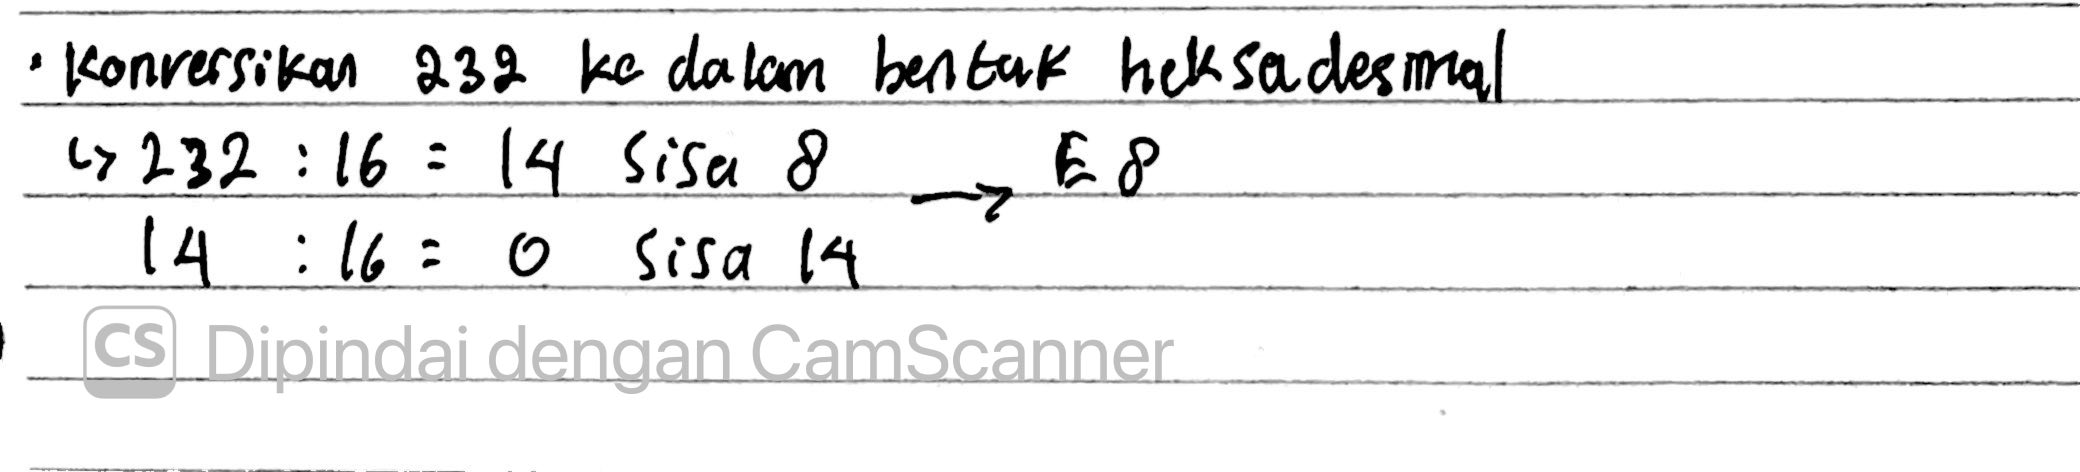 • Konversikan 232 ke dalam bentuk heksadesimal
↳ 232 : 16 = 14 sisa 8 → E8
14 : 16 = 0 sisa 14
CS Dipindai dengan CamScanner